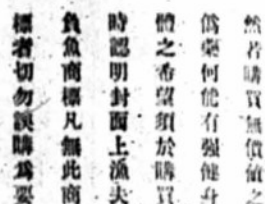 然若購買無價值之
爲藥何能有强健身之
體之希望須於購買
時認明封面上漁夫
負魚商標凡無此商
標者切勿誤購爲要